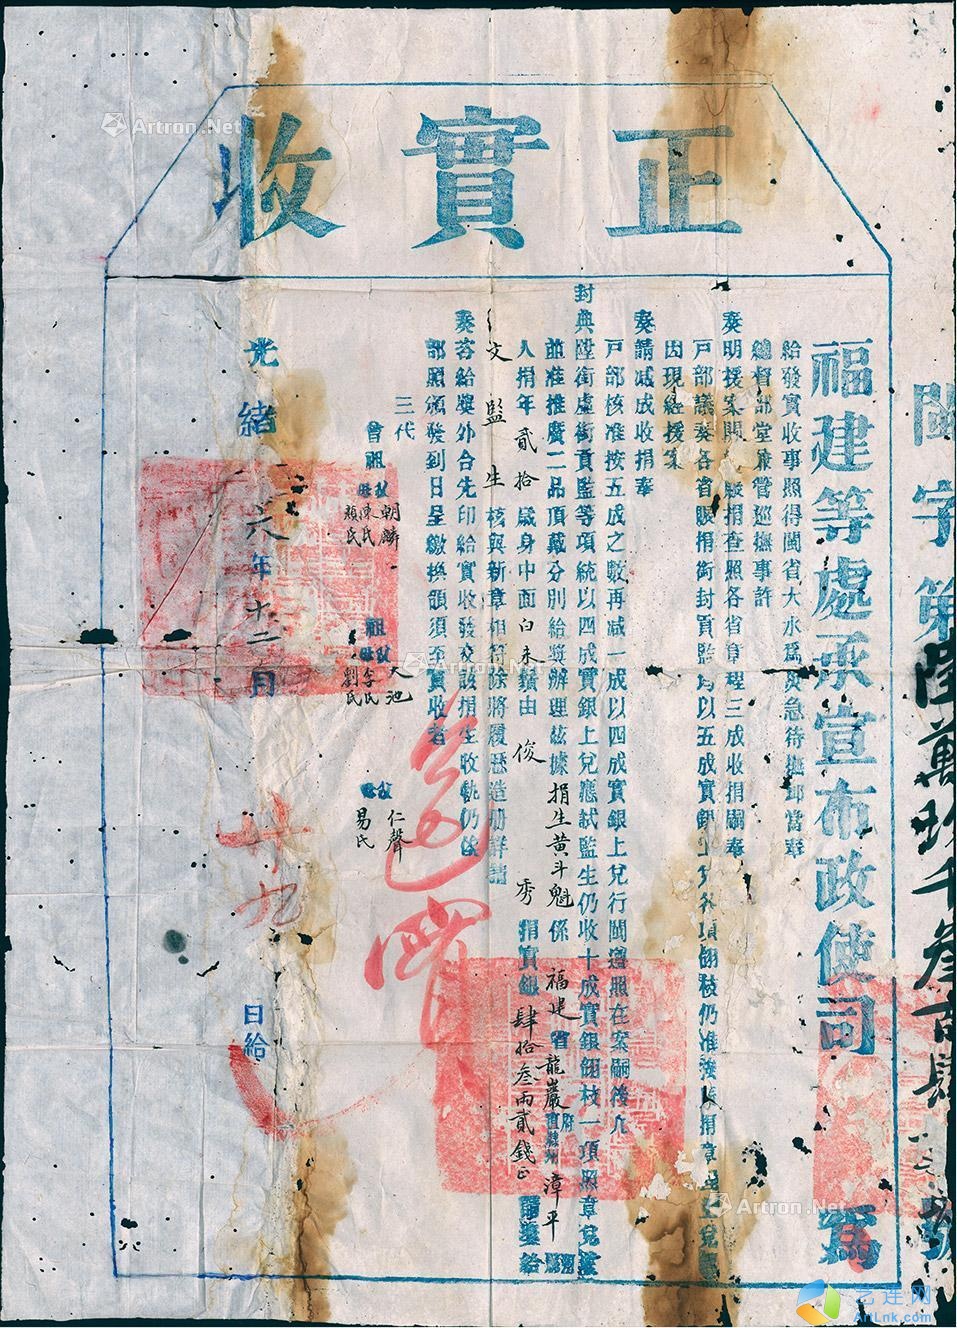 正實收
閩字第陸萬玖千叁百肆
號
福建等處承宣布政使司 爲
給發實收事照得閩省大水爲災急待撫卹當奉
總督部堂兼管巡撫事許
奏明援案開 賑捐查照各省章程三成收捐嗣奉
戶部議奏各省賑捐銜封貢監均以五成實銀上兌各項翎枝仍准
因現經援案
奏請减成收捐奉
戶部核准按五成之數再减一成以四成實銀上兌行閩遵照在案嗣後凡
封典陞銜虛銜貢監等項統以四成實銀上兌應試監生仍收十成實銀翎枝一項照章兌收
並准推廣二品頂戴分別給獎辦理茲據捐生黄斗魁係 福建省龍巖府直隸州漳平縣
人捐年貳拾 歲身中面白未鬚由俊 秀 捐實銀肆拾叁兩貳錢正 請獎給
文 監 生 核與新章相符除將履歷造册詳請
奏咨給獎外合先印給實收發交該捐生收執仍俟
部照頒發到日呈繳換領須至實收者
三代
曾祖 父朝麟 母陳氏 顏氏 祖 父天池 母李氏 劉氏 父仁聲 母易氏
光緒 廿六年十二月 廿九 日給
Artron.Net
Artron.Net
Artron.Net
Artron.Net
艺连网
ArtLnk.com